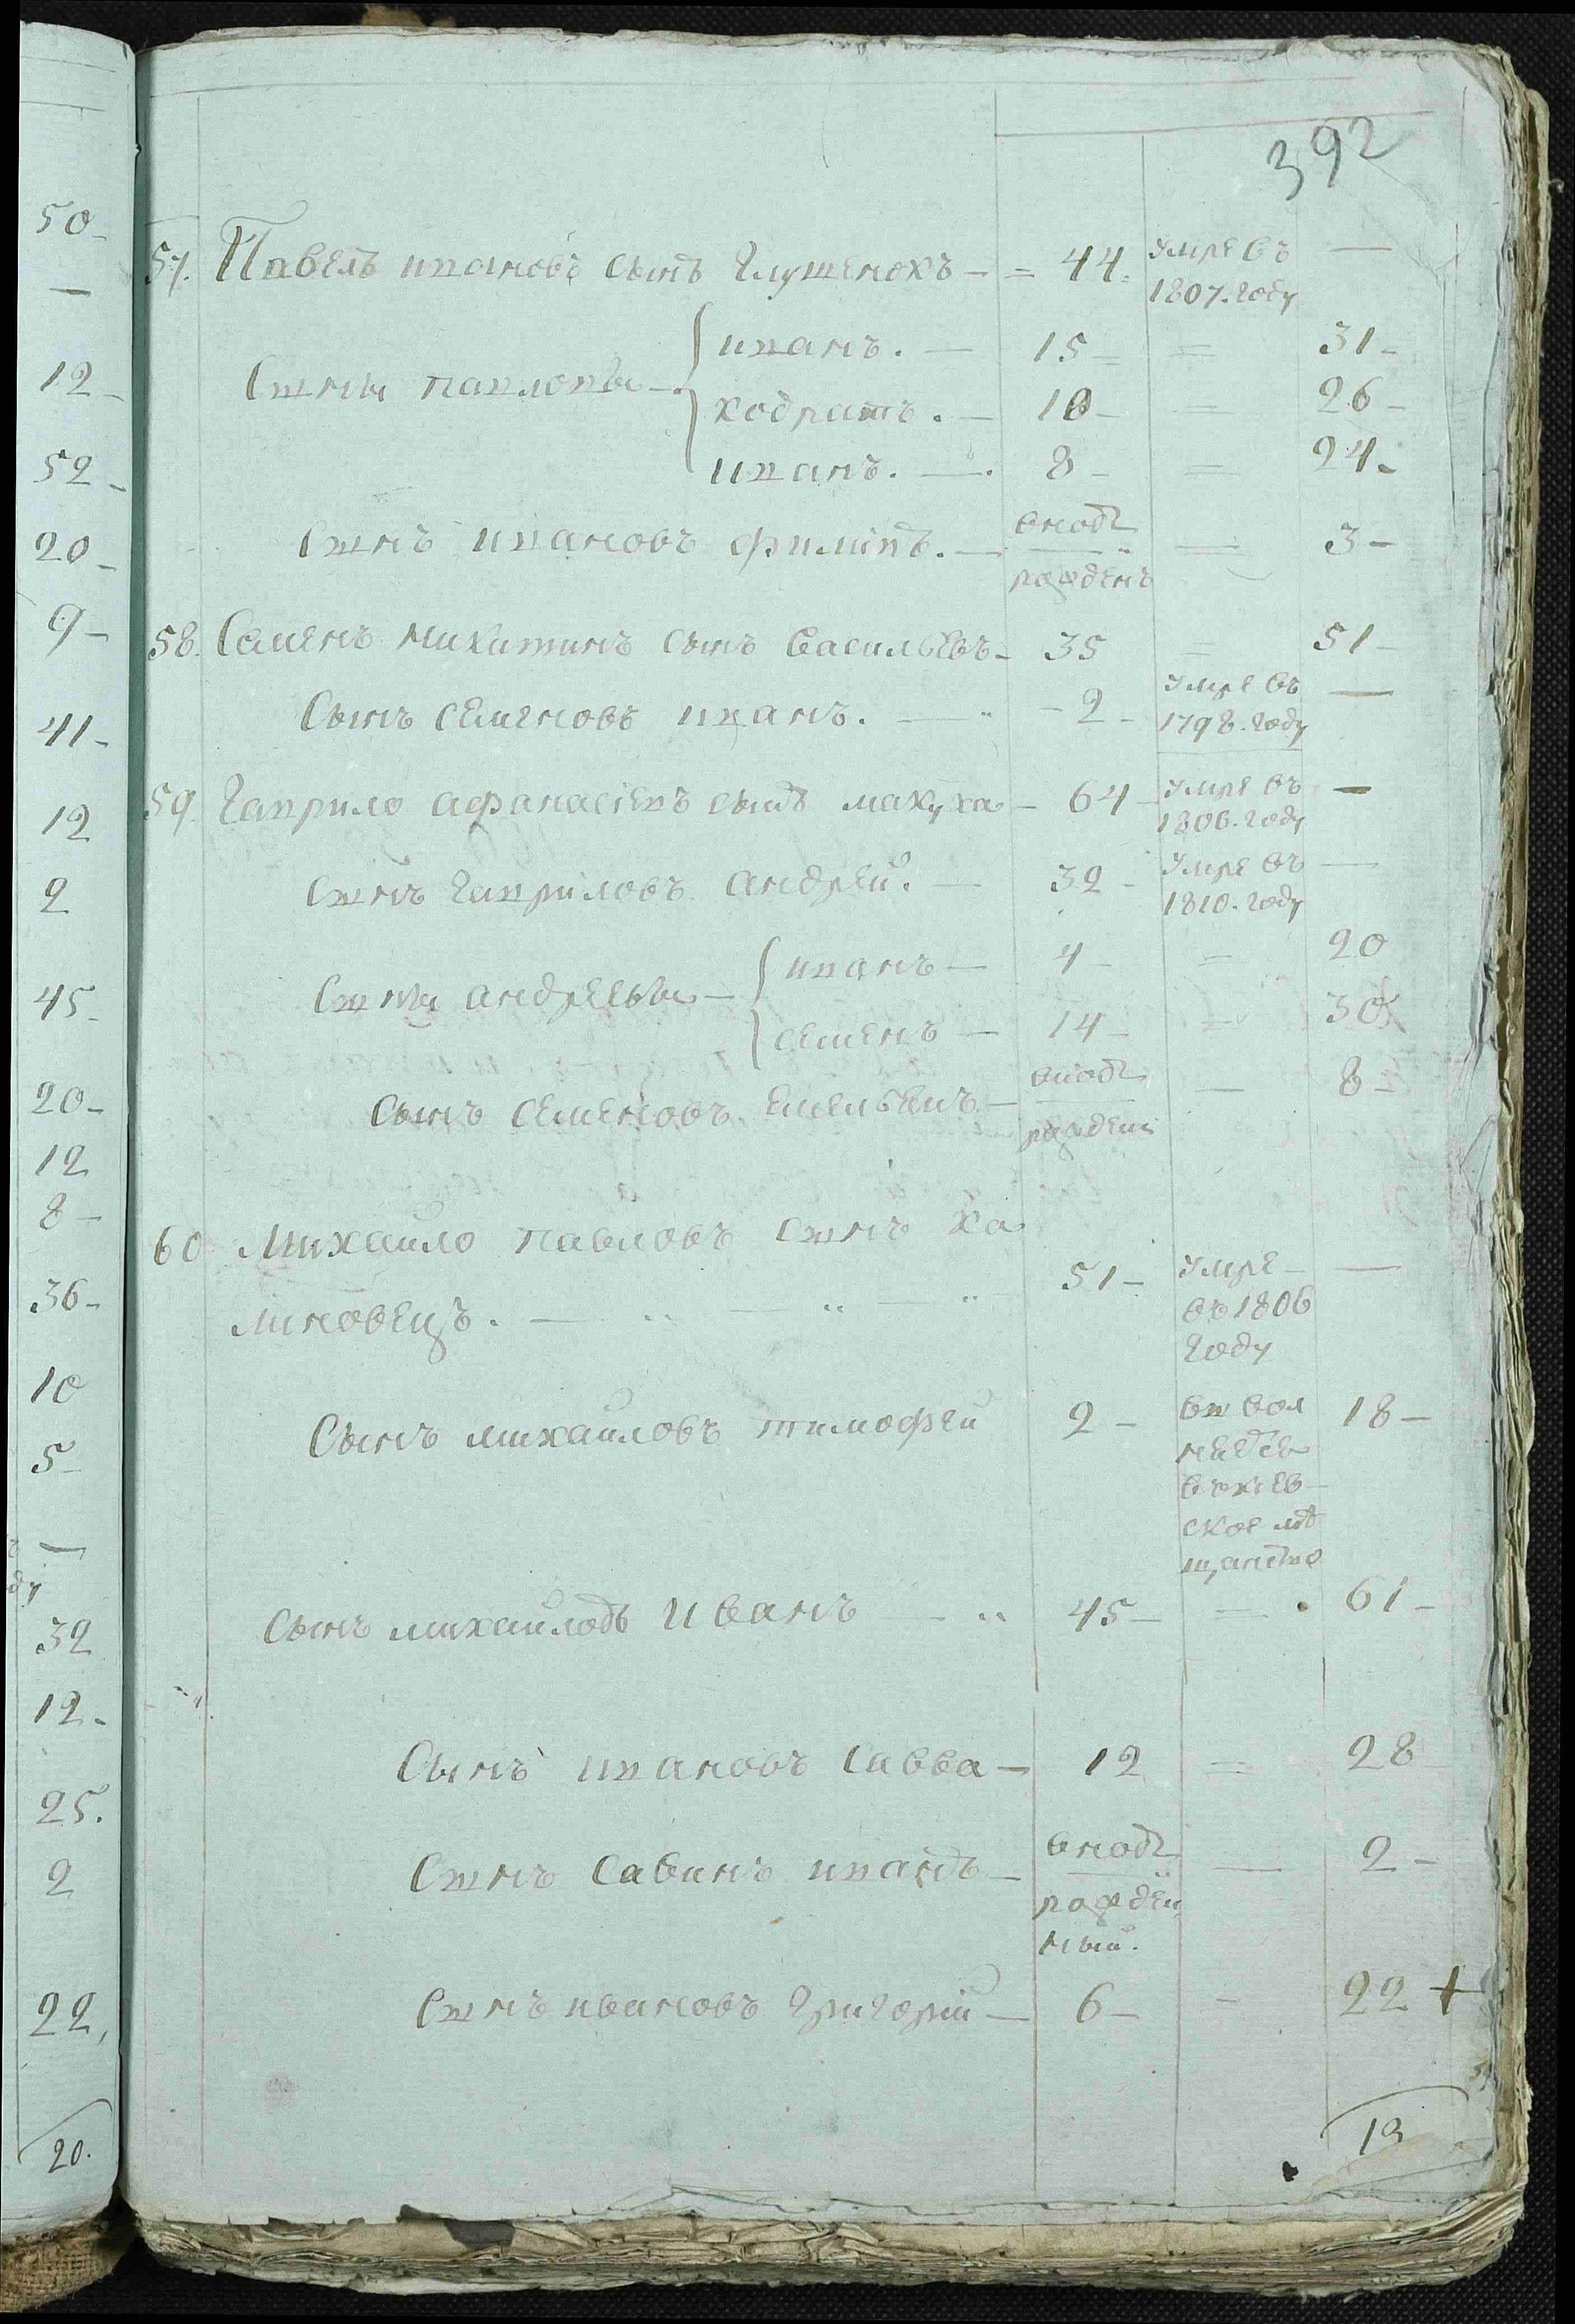 392
57. Павелъ ивановъ сынъ Глущенокъ - = 44 = умре въ —
1807. году
Сыны павловы - иванъ. — 15 = = 31 -
кодратъ. - 10 - = 26 -
иванъ. —. 8 - = 24 -
Сынъ ивановъ филипъ. — вновь рожденъ = 3 -
58. Семенъ никитинъ сынъ васильевъ - 35 = 51 -
Сынъ семеновъ иванъ. — - 2 - умре въ —
1798. году
59. Гаврило афанасіевъ сынъ макуха - 64 - умре въ —
1806. году
Сынъ гавриловъ андрей. — 32 - умре въ —
1810. году
Сыны андреевы - иванъ — 4 - = 20
семенъ — 14 - = 30
Сынъ семеновъ — вновь рожденъ — 8 -
60 Михайло павловъ сынъ ка
линовецъ. — 51 - умре —
въ 1806
году
Сынъ михайловъ тимофей 2 - 18 -
въ киев
ское мѣ
щанство
Сынъ михайловъ иванъ — 45 — = 61 -
Сынъ ивановъ савва — 12 = 28
Сынъ савинъ иванъ — вновь — 2 -
рожден
ный.
Сынъ ивановъ григорій — 6 - - 22 +
13
50 -
—
12 -
52 -
20 -
9 -
41 -
12
2
45 -
20 -
12
8 -
36 -
10
5 -
—
ду
32
12 -
25.
2
22,
20.